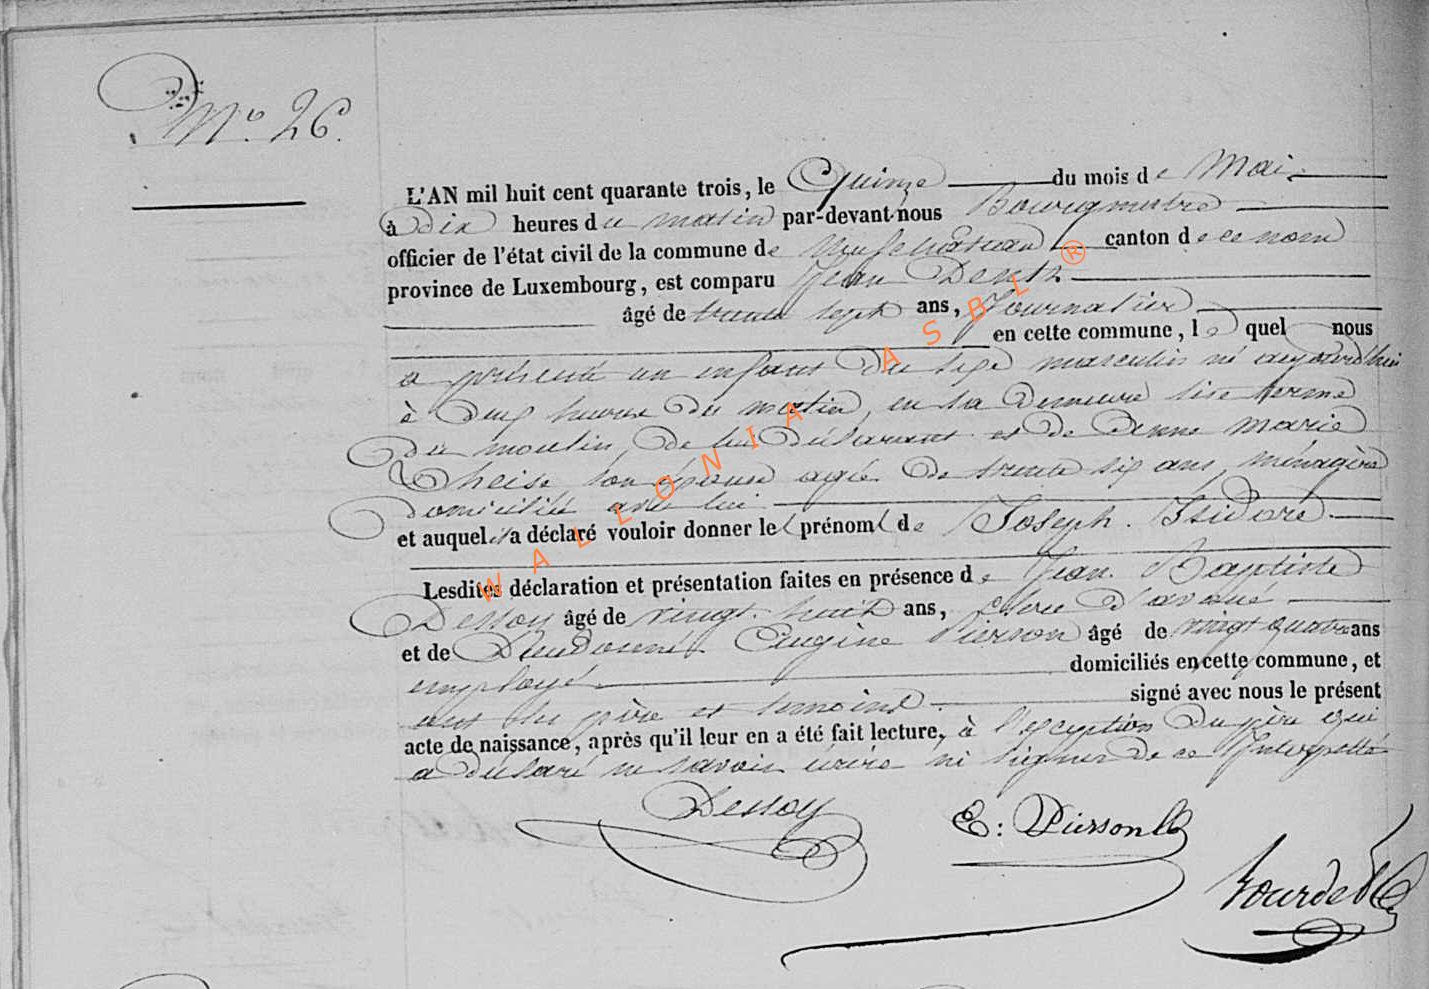 N° 26.
L'AN mil huit cent quarante trois, le Quinze du mois de Mai
à Dix heures du matin par-devant nous Bourgmestre
officier de l'état civil de la commune de Neufchateau canton de ce nom
province de Luxembourg, est comparu Jean
âgé de trente sept ans, Journalier
en cette commune, lequel nous
a présenté un enfant du sexe masculin né aujourd'hui
à deux heures du matin, en sa demeure sise ferme
du moulin, de lui déclarant et de Anne Marie
Theise son épouse agée de trente six ans, ménagère
domiciliée avec lui
et auquel il a déclaré vouloir donner le prénom de Joseph. Isidore.
Lesdites déclaration et présentation faites en présence de Jean Baptiste
Dessoy âgé de vingt huit ans, clerc d'avoué
et de Dieudonné Eugène Pierson âgé de vingt quatre ans
employé domiciliés en cette commune, et
ont les père et temoins signé avec nous le présent
acte de naissance, après qu'il leur en a été fait lecture, à l'exception du père qui
a déclaré ne savoir écrire ni signer de ce Interpellé
Dessoy
E: Pierson
WALLONIA ASBL ®